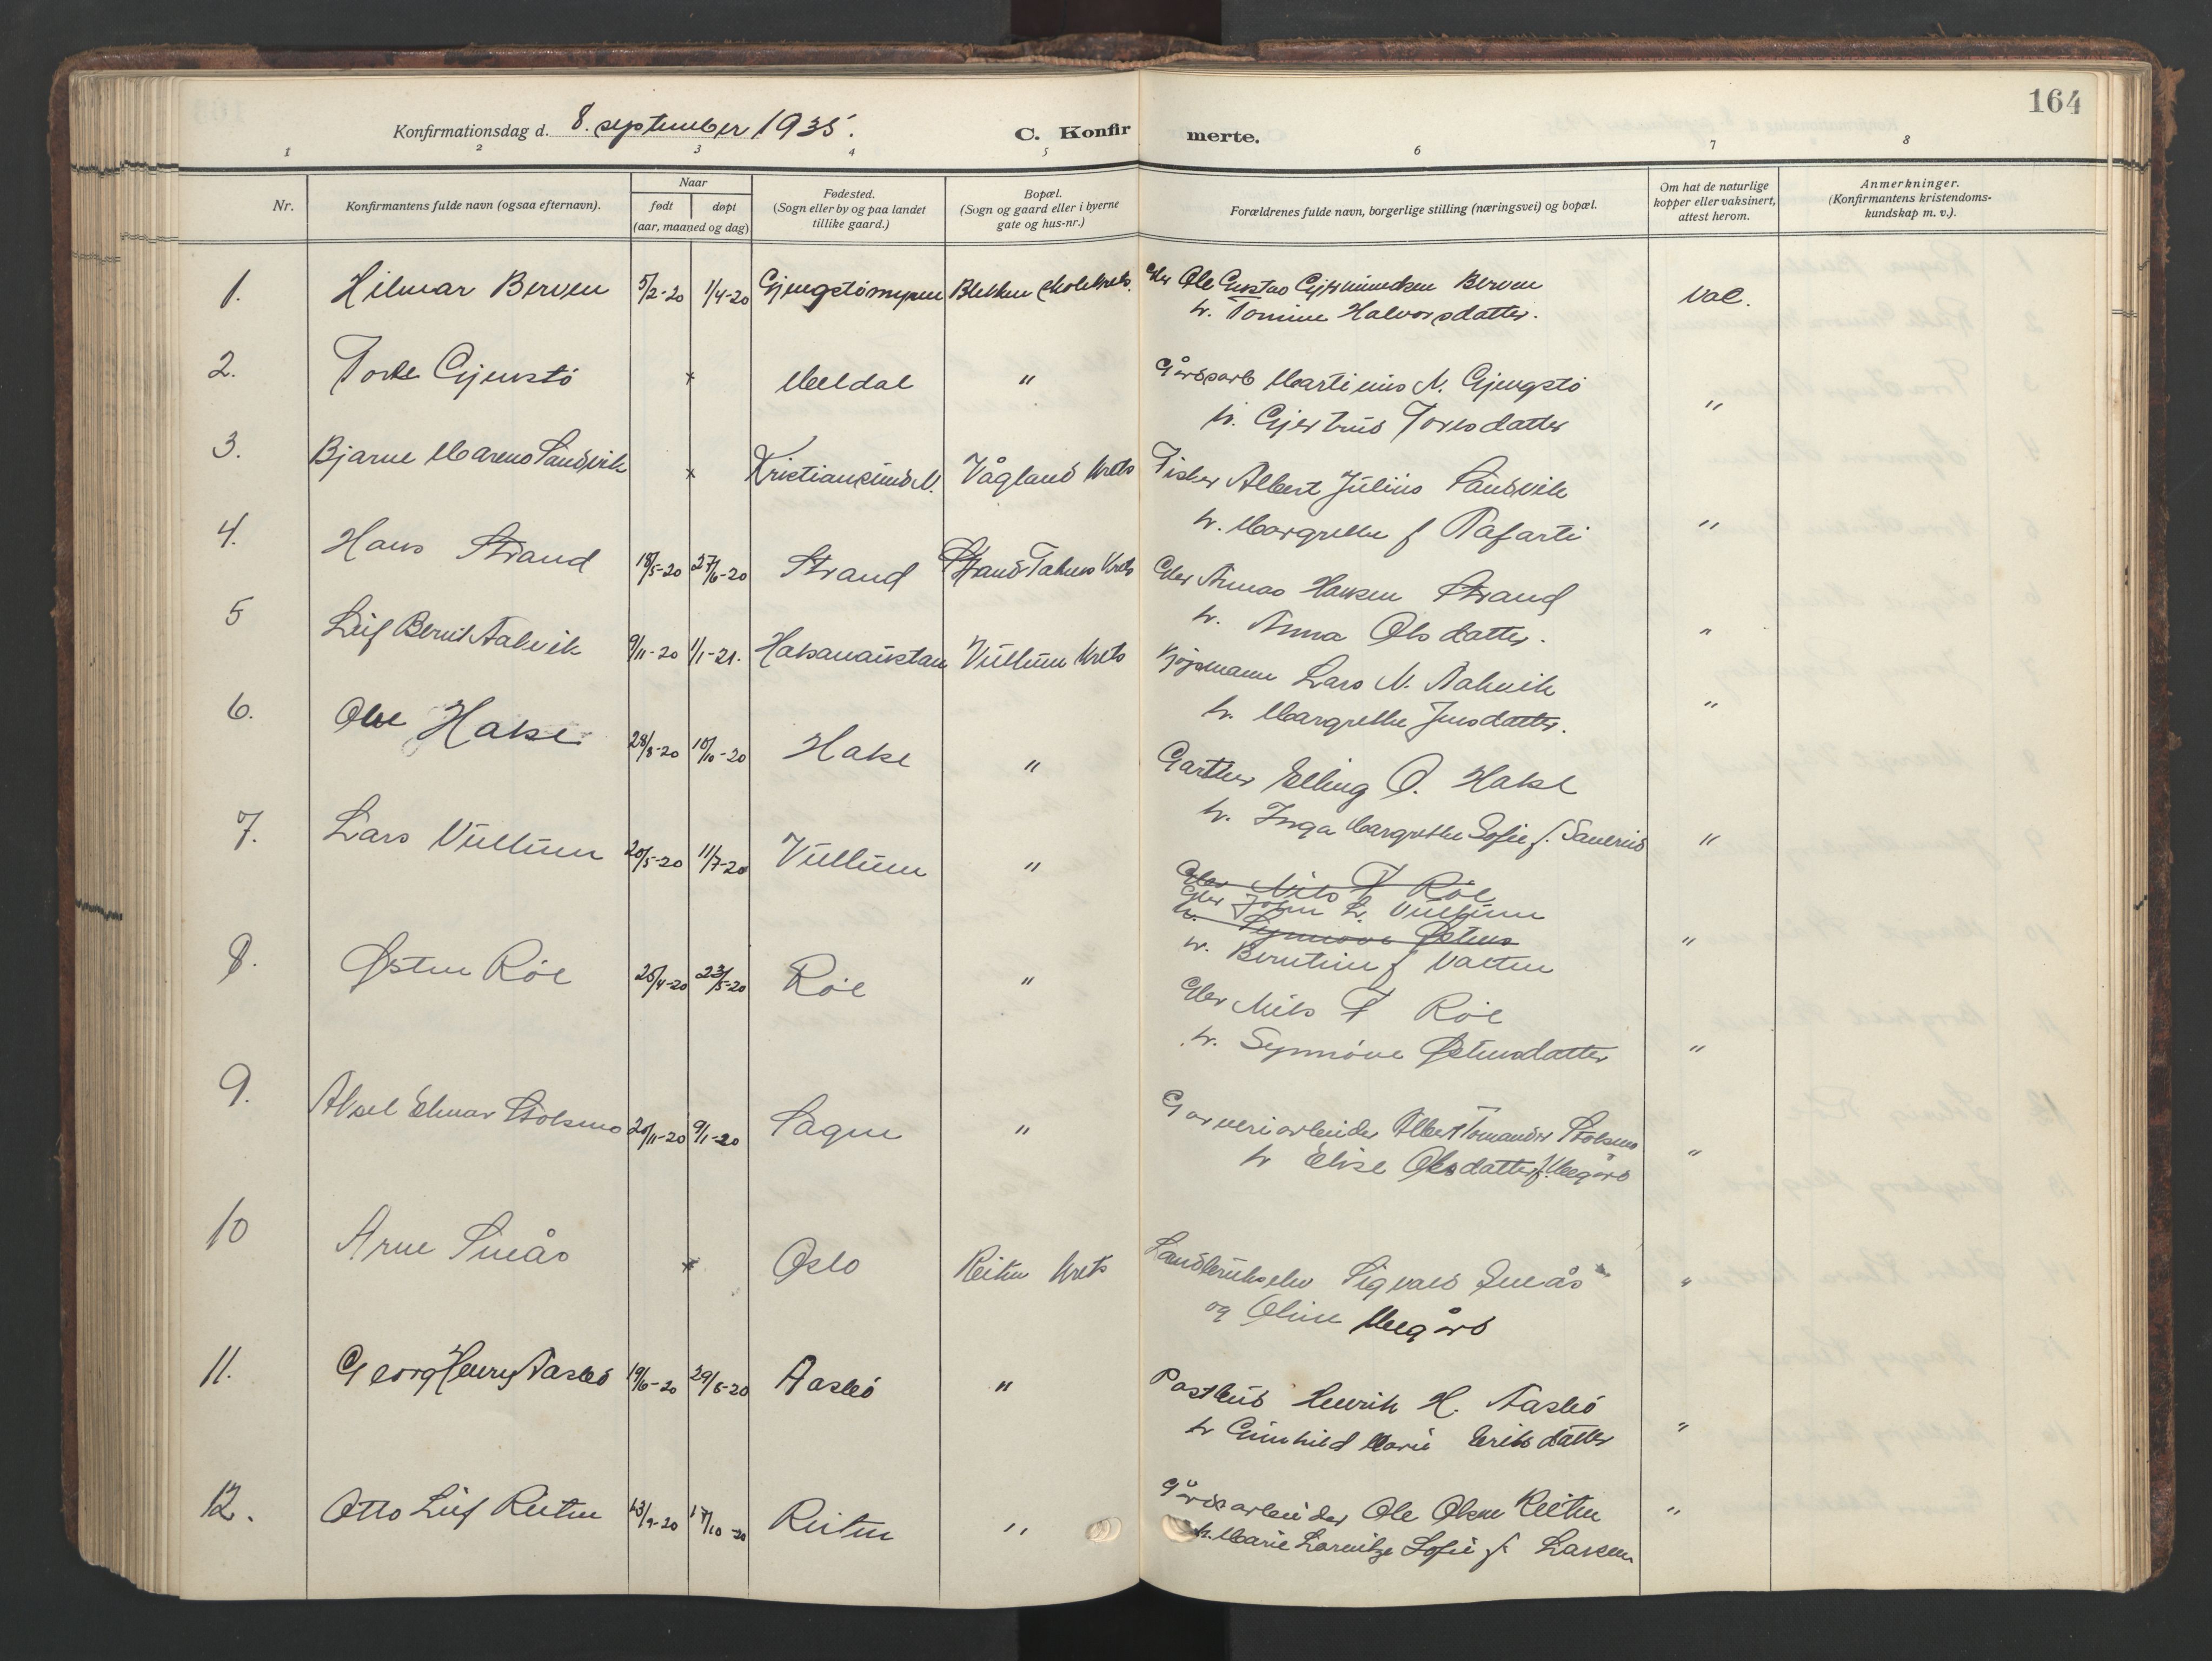 164
Konfirmationsdag d. 8. september 1935.
C. Konfir merte.
1 2 3 4 5 6 7 8
Nr.
Konfirmantens fulde navn (ogsaa efternavn).
Naar
født døpt
(aar, maaned og dag)
Fødested.
(Sogn eller by og paa landet
tillike gaard.)
Bopæl.
(Sogn og gaard eller i byerne
gate og hus-nr.)
Forældrenes fulde navn, borgerlige stilling (næringsvei) og bopæl.
Om hat de naturlige
kopper eller vaksinert,
attest herom.
Anmerkninger.
(Konfirmantens kristendoms-
kundskap m. v.).
1. Hilmar Berven 5/2-20 1/4-20 Gjengstømyren
Gbr Ole Gustav Berven
h. Tomine Halvorsdatter.
vac.
2. Tore Gjengstø x Meldal "
Gårdsarb Martinius N. Gjengstø
h. Gjertrud Toresdatter
"
3. Bjarne Mareno Sandvik x Kristiansund N. Vågland krets
Fisker Albert Julius Sandvik
h. Margrethe f
"
4. Hans Strand 18/5-20 27/6-20 Strand Strand krets
Gbr Hansen Strand
h. Anna Olsdatter.
"
5 Leif Bernt Aakvik 9/11-20 1/1-21. Vullum krets
Lars N. Aakvik
h. Margrethe Jensdatter.
"
6. Ole Hakse 28/8-20 10/10-20 Hakse "
Gartner Elling O. Hakse
h. Inga Margrethe Sofie f.
"
7. Lars Vullum 20/5-20 11/7-20 Vullum "
Gbr Nils T Røe
Gbr John L. Vullum
h. Synnøve Østens
h. Berntine f Valen
"
8. Østen Røe 25/4-20 23/5-20 Røe "
Gbr Nils T Røe
h. Synnøve Østensdatter
"
9. Aksel Elmar Stokmo 20/11-20 9/1-20 Sagen "
Garveriarbeider Albert Stokmo
h Elise Olsdatter f. Megård
"
10 Arne Smeås x Oslo Reiten krets
Sigvald Smeås
og Oline Megård
"
11. Georg Henry Aasbø 19/6-20 29/8-20 Aasbø "
Postbud Henrik H. Aasbø
h Gunhild Marie Eriksdatter
"
12. Otto Leif Reiten 13/9-20 17/10-20 Reiten "
Gårdsarbeider Ole Olsen Reiten
h. Marie Sofie f. Larsen
"